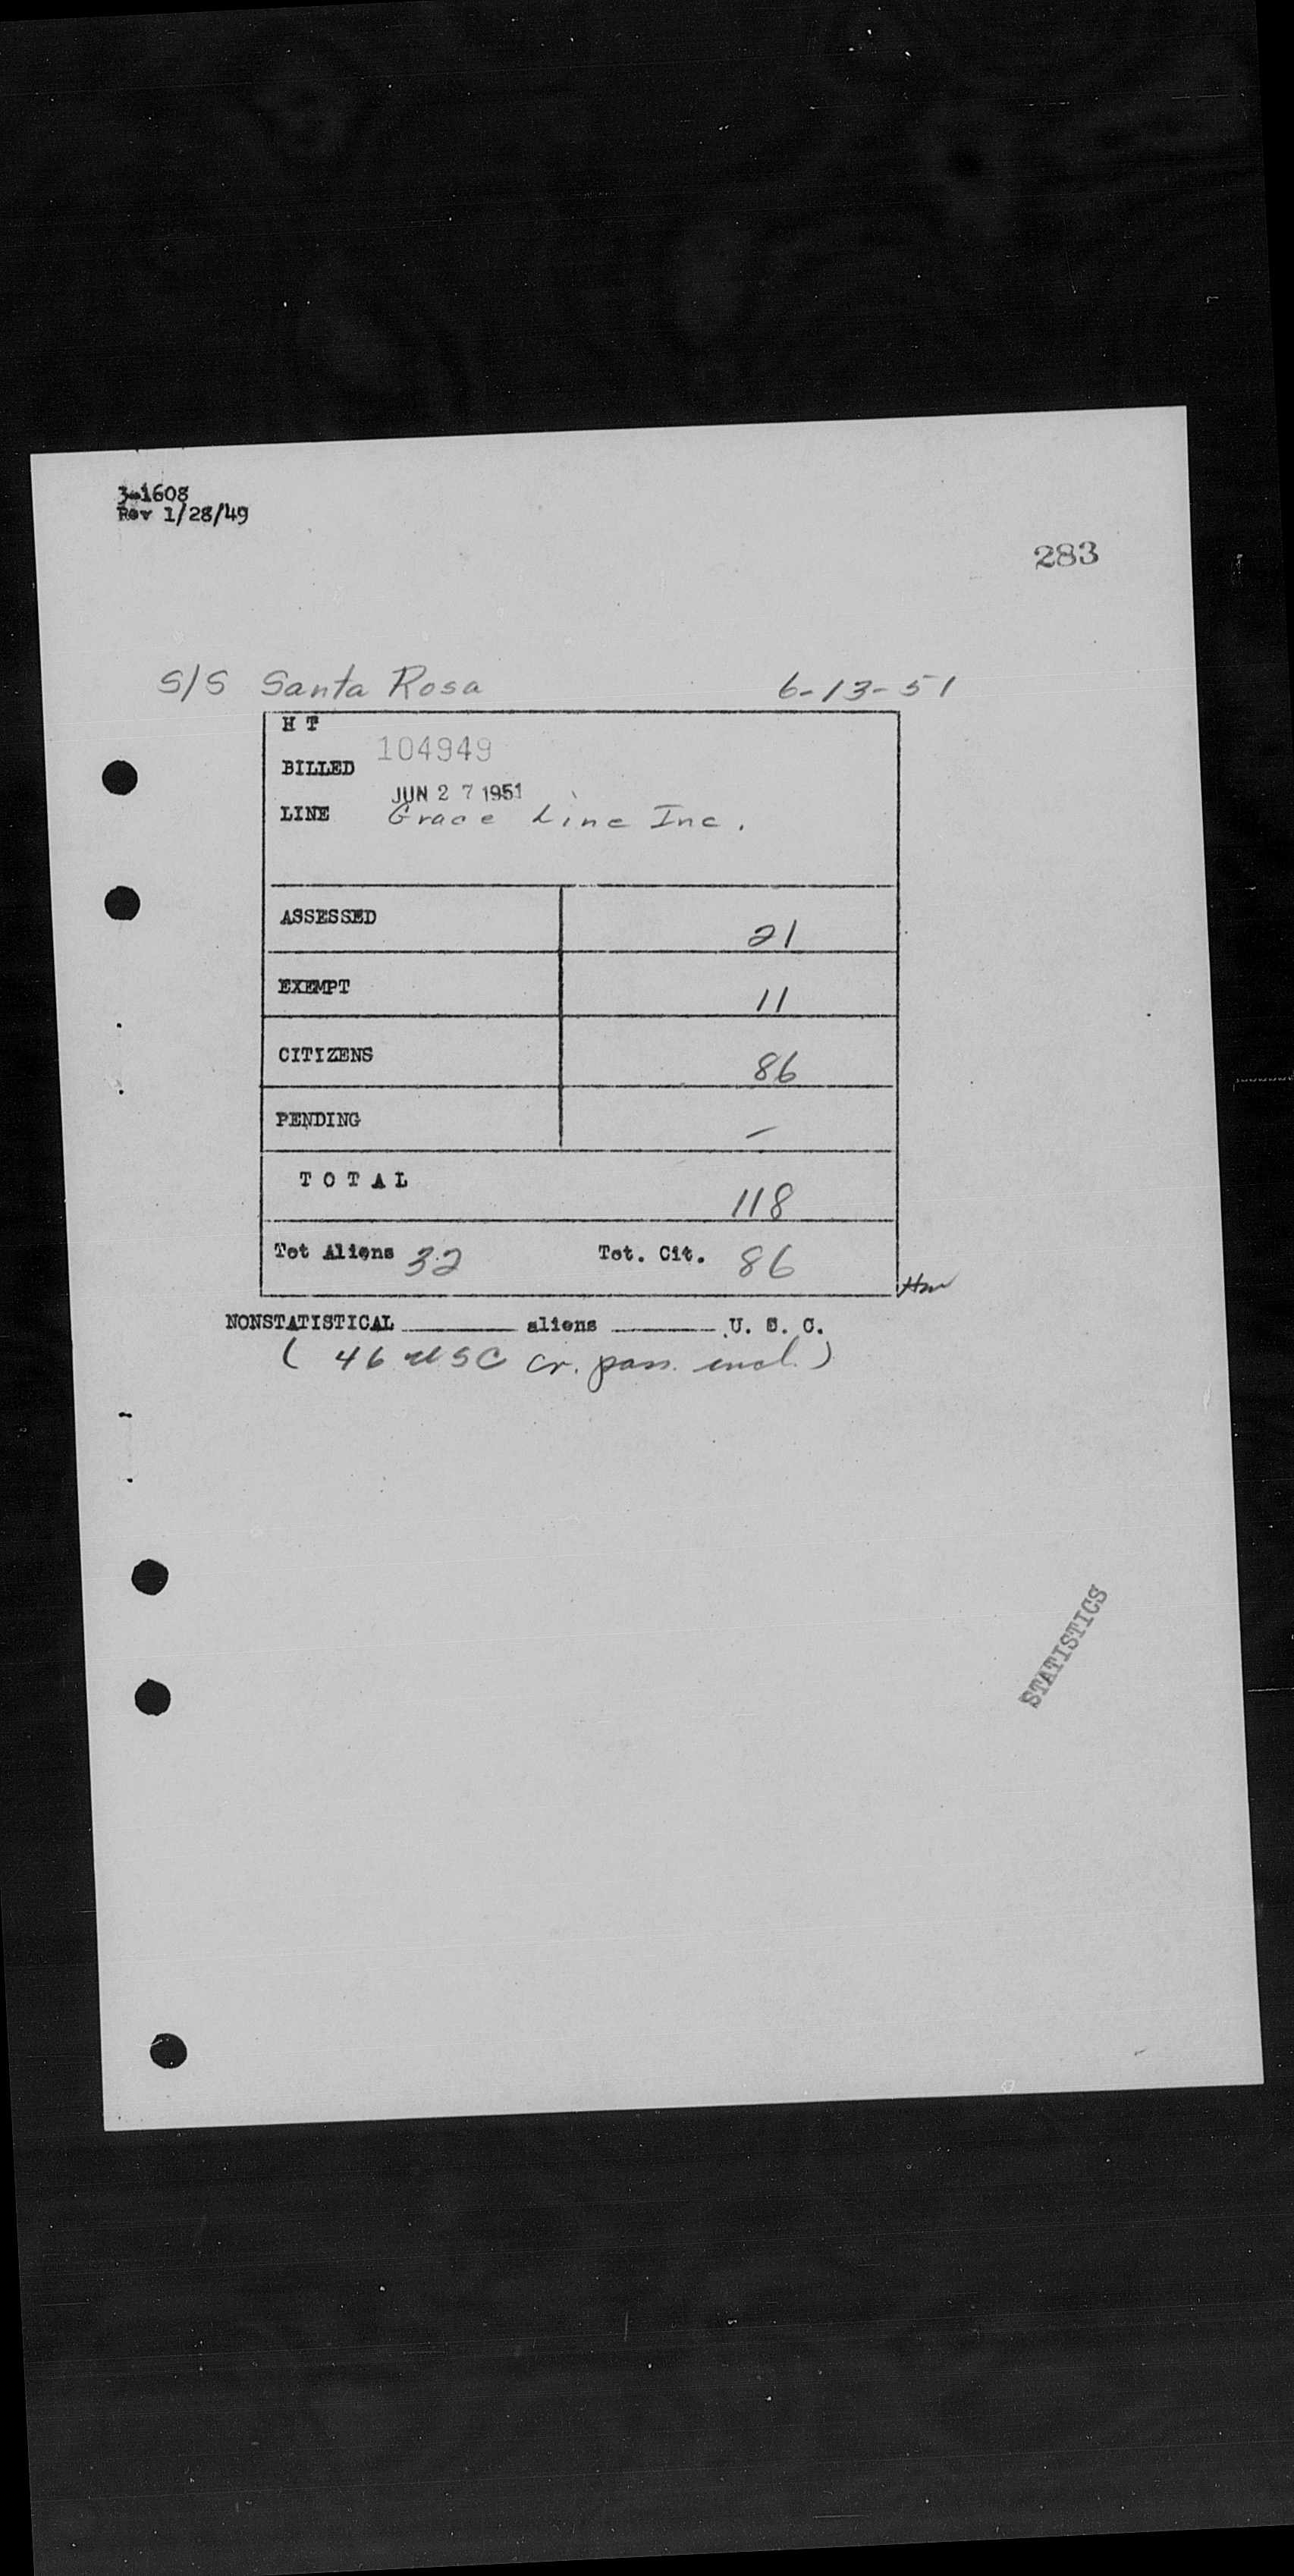 3-1608
Rev 1/28/49
283
S/S Santa Rosa 6-13-51
H T
104949
BILLED
JUN 27 1951
LINE Grace Line Inc.
ASSESSED 21
EXEMPT 11
CITIZENS 86
PENDING –
TOTAL 118
Tot Aliens 32 Tot. Cit. 86
NONSTATISTICAL ________ aliens ________ U. S. C.
( 46 USC cr. pass. incl. )
STATISTICS